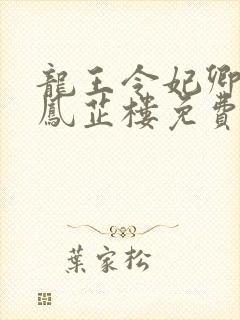 龍王令妃卿
鳳芷樓免費
葉家松